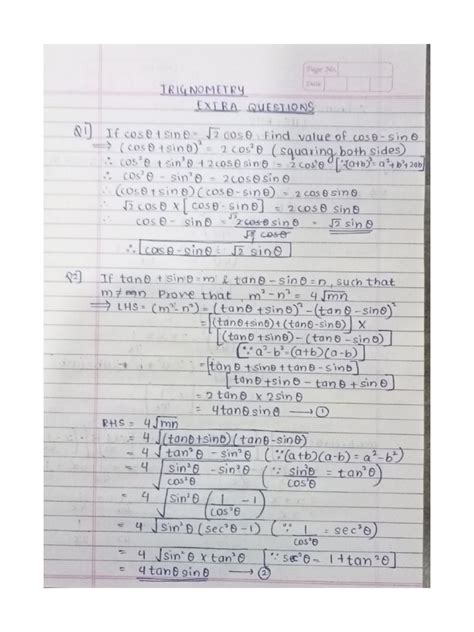 Page No.
Date
TRIGNOMETRY
EXTRA QUESTIONS
Q1] If cosθ + sinθ = √2 cosθ. Find value of cosθ - sinθ
⟹ (cosθ + sinθ)² = 2cos²θ (squaring both sides)
∴ cos²θ + sin²θ + 2cosθsinθ = 2cos²θ [∵(a+b)² = a²+b²+2ab]
∴ cos²θ - sin²θ = 2cosθsinθ
∴ (cosθ + sinθ)(cosθ - sinθ) = 2cosθsinθ
∴ √2 cosθ × [cosθ - sinθ] = 2cosθ sinθ
∴ cosθ - sinθ = √2 2cosθ sinθ / √2 cosθ = √2 sinθ
∴ [cosθ - sinθ = √2 sinθ]
Q2] If tanθ + sinθ = m & tanθ - sinθ = n, such that
m ≠ mn Prove that, m² - n² = 4√mn
⟹ LHS = (m² - n²) = (tanθ + sinθ)² - (tanθ - sinθ)²
= [(tanθ+sinθ) + (tanθ - sinθ)] ×
[(tanθ - sinθ) - (tanθ - sinθ)]
[∵ a² - b² = (a+b)(a-b)]
= [tanθ + sinθ + tanθ - sinθ]
[tanθ + sinθ - tanθ + sinθ]
= 2tanθ × 2sinθ
= 4tanθsinθ ⟶ ①
RHS = 4√mn
= 4√(tanθ+sinθ)(tanθ-sinθ)
= 4√tan²θ - sin²θ (∵(a+b)(a-b) = a² - b²)
= 4√sin²θ/cos²θ - sin²θ (∵ sin²θ/cos²θ = tan²θ)
= 4√sin²θ (1/cos²θ - 1)
= 4√sin²θ (sec²θ - 1) (∵ 1/cos²θ = sec²θ)
= 4√sin²θ × tan²θ [∵ sec²θ = 1 + tan²θ]
= 4tanθ sinθ ⟶ ②